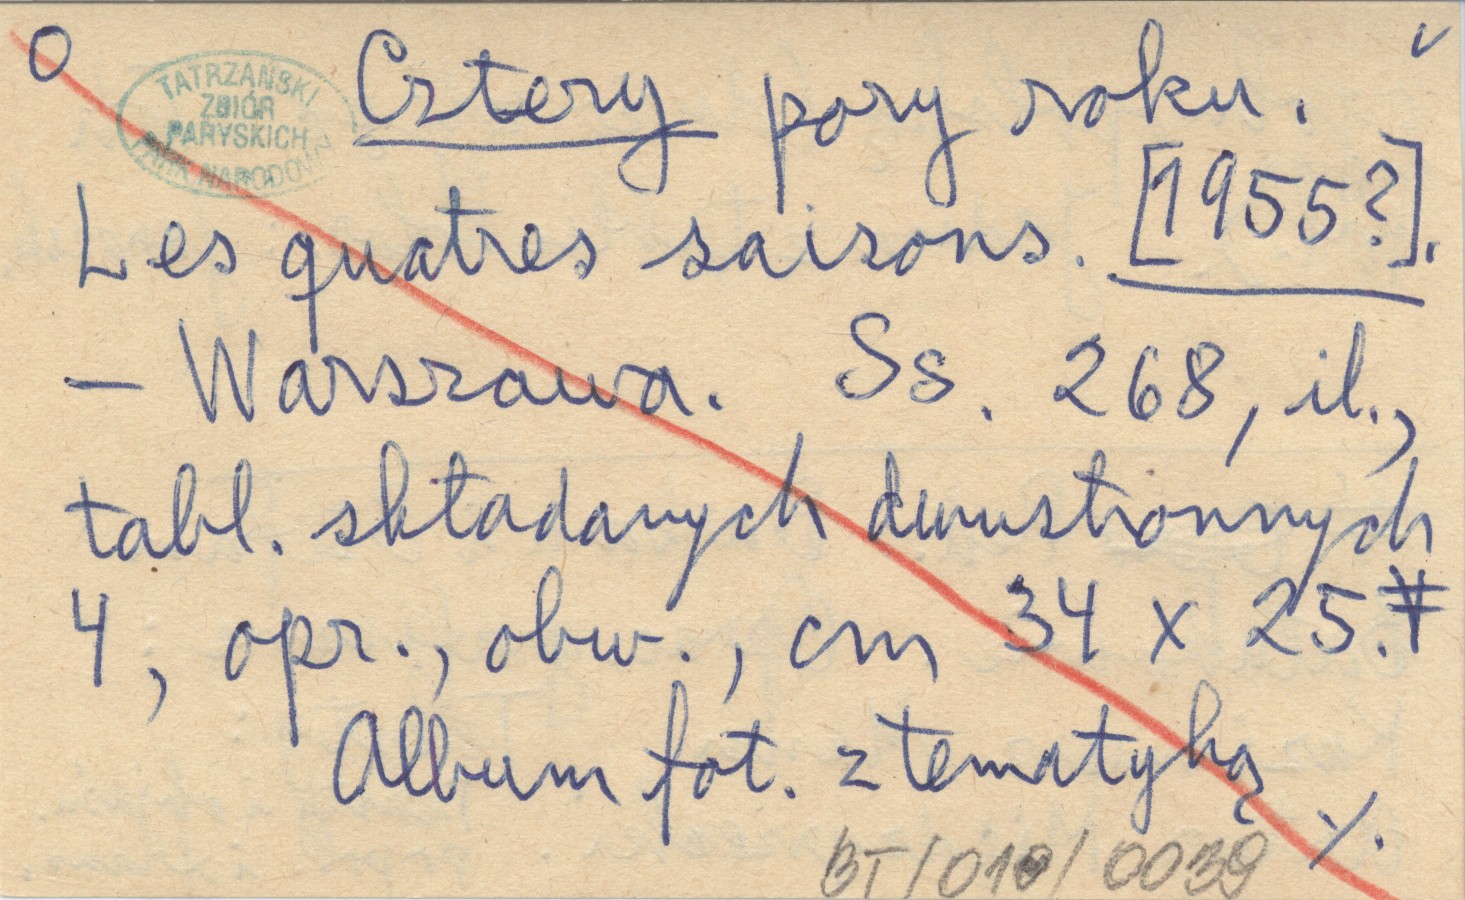 O Cztery pory roku. v
TATRZAŃSKI
ZBIÓR
PARYSKICH
PARK NARODOWY
Les quatres saisons. [1955?].
— Warszawa. Ss. 268, il.,
tabl. składanych dwustronnych
4, opr., obw., cm 34 x 25.
Album fot. z tematyką
./.
BT/010/0039